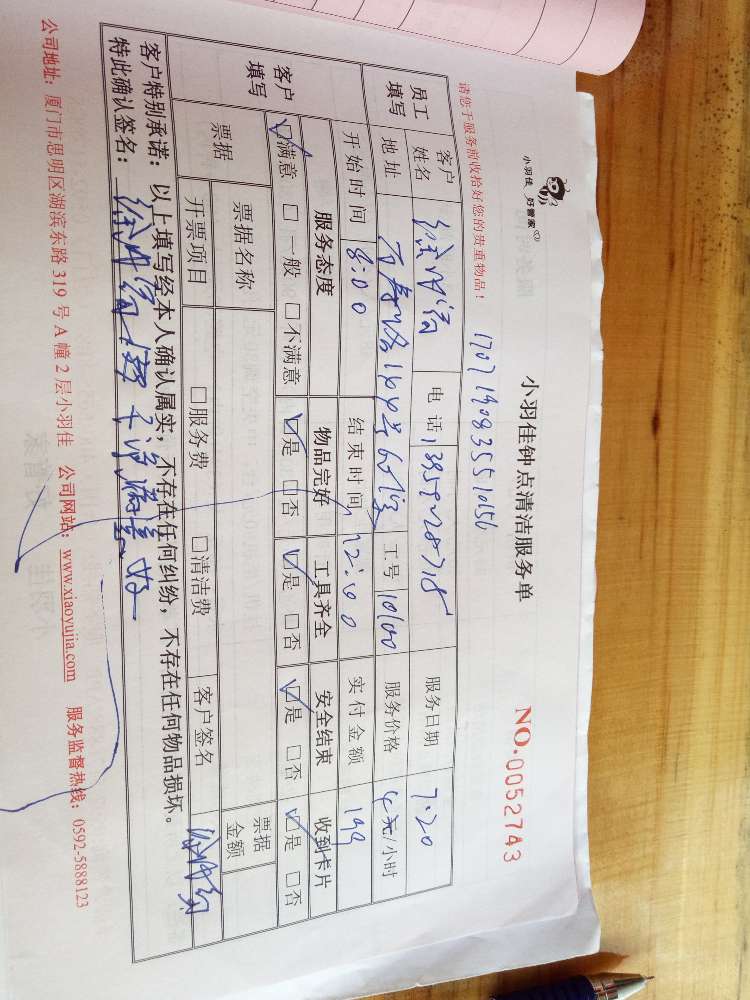 小羽佳 好管家
小羽佳钟点清洁服务单
NO.0052743
请您于服务前收拾好您的贵重物品！
员工填写
客户姓名 电话 服务日期 7.20
地址 工号 10100 服务价格 4元/小时
开始时间 8:00 结束时间 12:00 实付金额 199
客户填写
服务态度 物品完好 工具齐全 安全结束 收到卡片
☑满意 □一般 □不满意 ☑是 □否 ☑是 □否 ☑是 □否 ☑是 □否
票据 票据名称 票据金额
开票项目 □服务费 □清洁费 客户签名
客户特别承诺：以上填写经本人确认属实，不存在任何纠纷，不存在任何物品损坏。
特此确认签名：
公司地址：厦门市思明区湖滨东路 319 号 A 幢 2 层小羽佳 公司网站：www.xiaoyujia.com 服务监督热线：0592-5888123